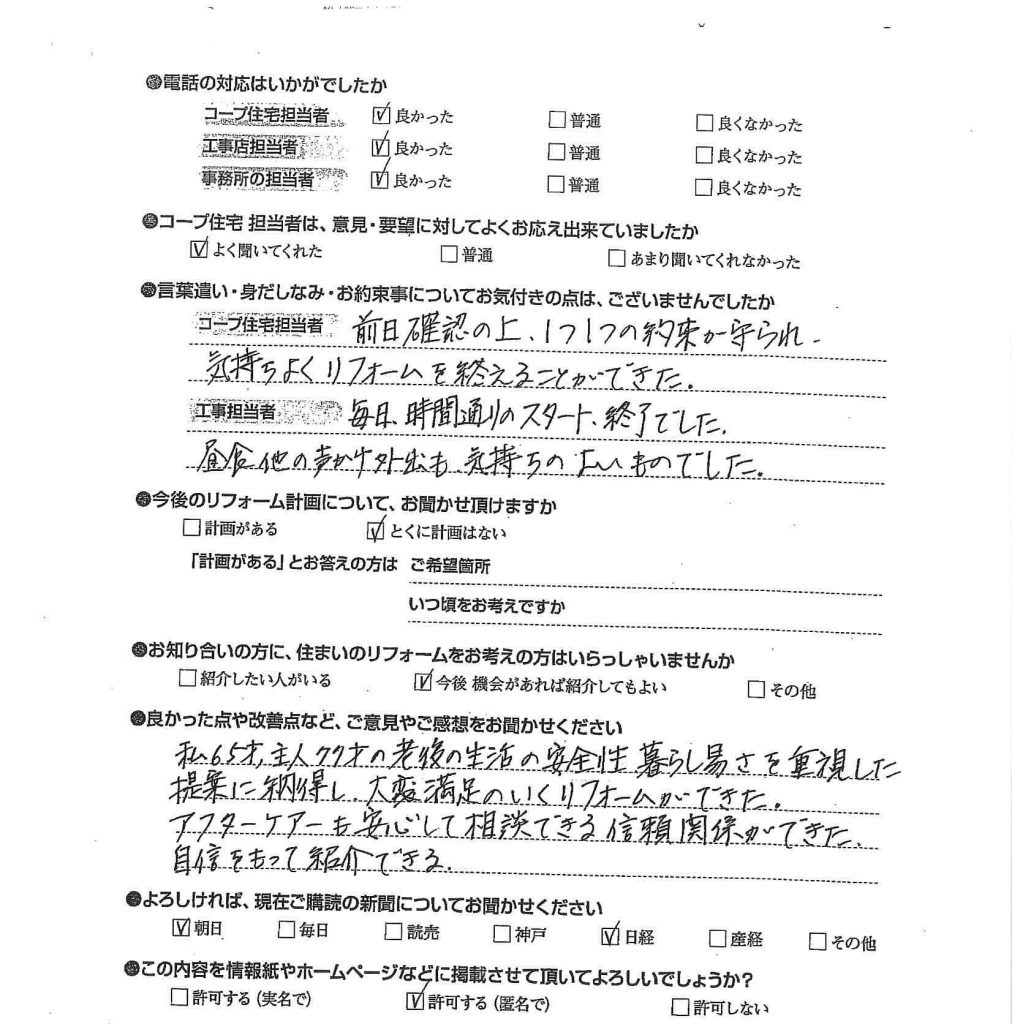 ●電話の対応はいかがでしたか
コープ住宅担当者 ☑良かった □普通 □良くなかった
工事店担当者 ☑良かった □普通 □良くなかった
事務所の担当者 ☑良かった □普通 □良くなかった
●コープ住宅 担当者は、意見・要望に対してよくお応え出来ていましたか
☑よく聞いてくれた □普通 □あまり聞いてくれなかった
●言葉遣い・身だしなみ・お約束事についてお気付きの点は、ございませんでしたか
コープ住宅担当者 前日確認の上、1つ1つの約束が守られ、
気持ちよくリフォームを終えることができた。
工事担当者 毎日、時間通りのスタート、終了でした。
昼食他の声かけ外出も、気持ちのよいものでした。
●今後のリフォーム計画について、お聞かせ頂けますか
□計画がある ☑とくに計画はない
「計画がある」とお答えの方は ご希望箇所
いつ頃をお考えですか
●お知り合いの方に、住まいのリフォームをお考えの方はいらっしゃいませんか
□紹介したい人がいる ☑今後 機会があれば紹介してもよい □その他
●良かった点や改善点など、ご意見やご感想をお聞かせください
私65才、主人77才の老後の生活の安全性、暮らし易さを重視した
提案に納得し、大変満足のいくリフォームができた。
アフターケアーも安心して相談できる信頼関係ができた。
自信をもって紹介できる。
●よろしければ、現在ご購読の新聞についてお聞かせください
☑朝日 □毎日 □読売 □神戸 ☑日経 □産経 □その他
●この内容を情報紙やホームページなどに掲載させて頂いてよろしいでしょうか?
□許可する（実名で） ☑許可する（匿名で） □許可しない